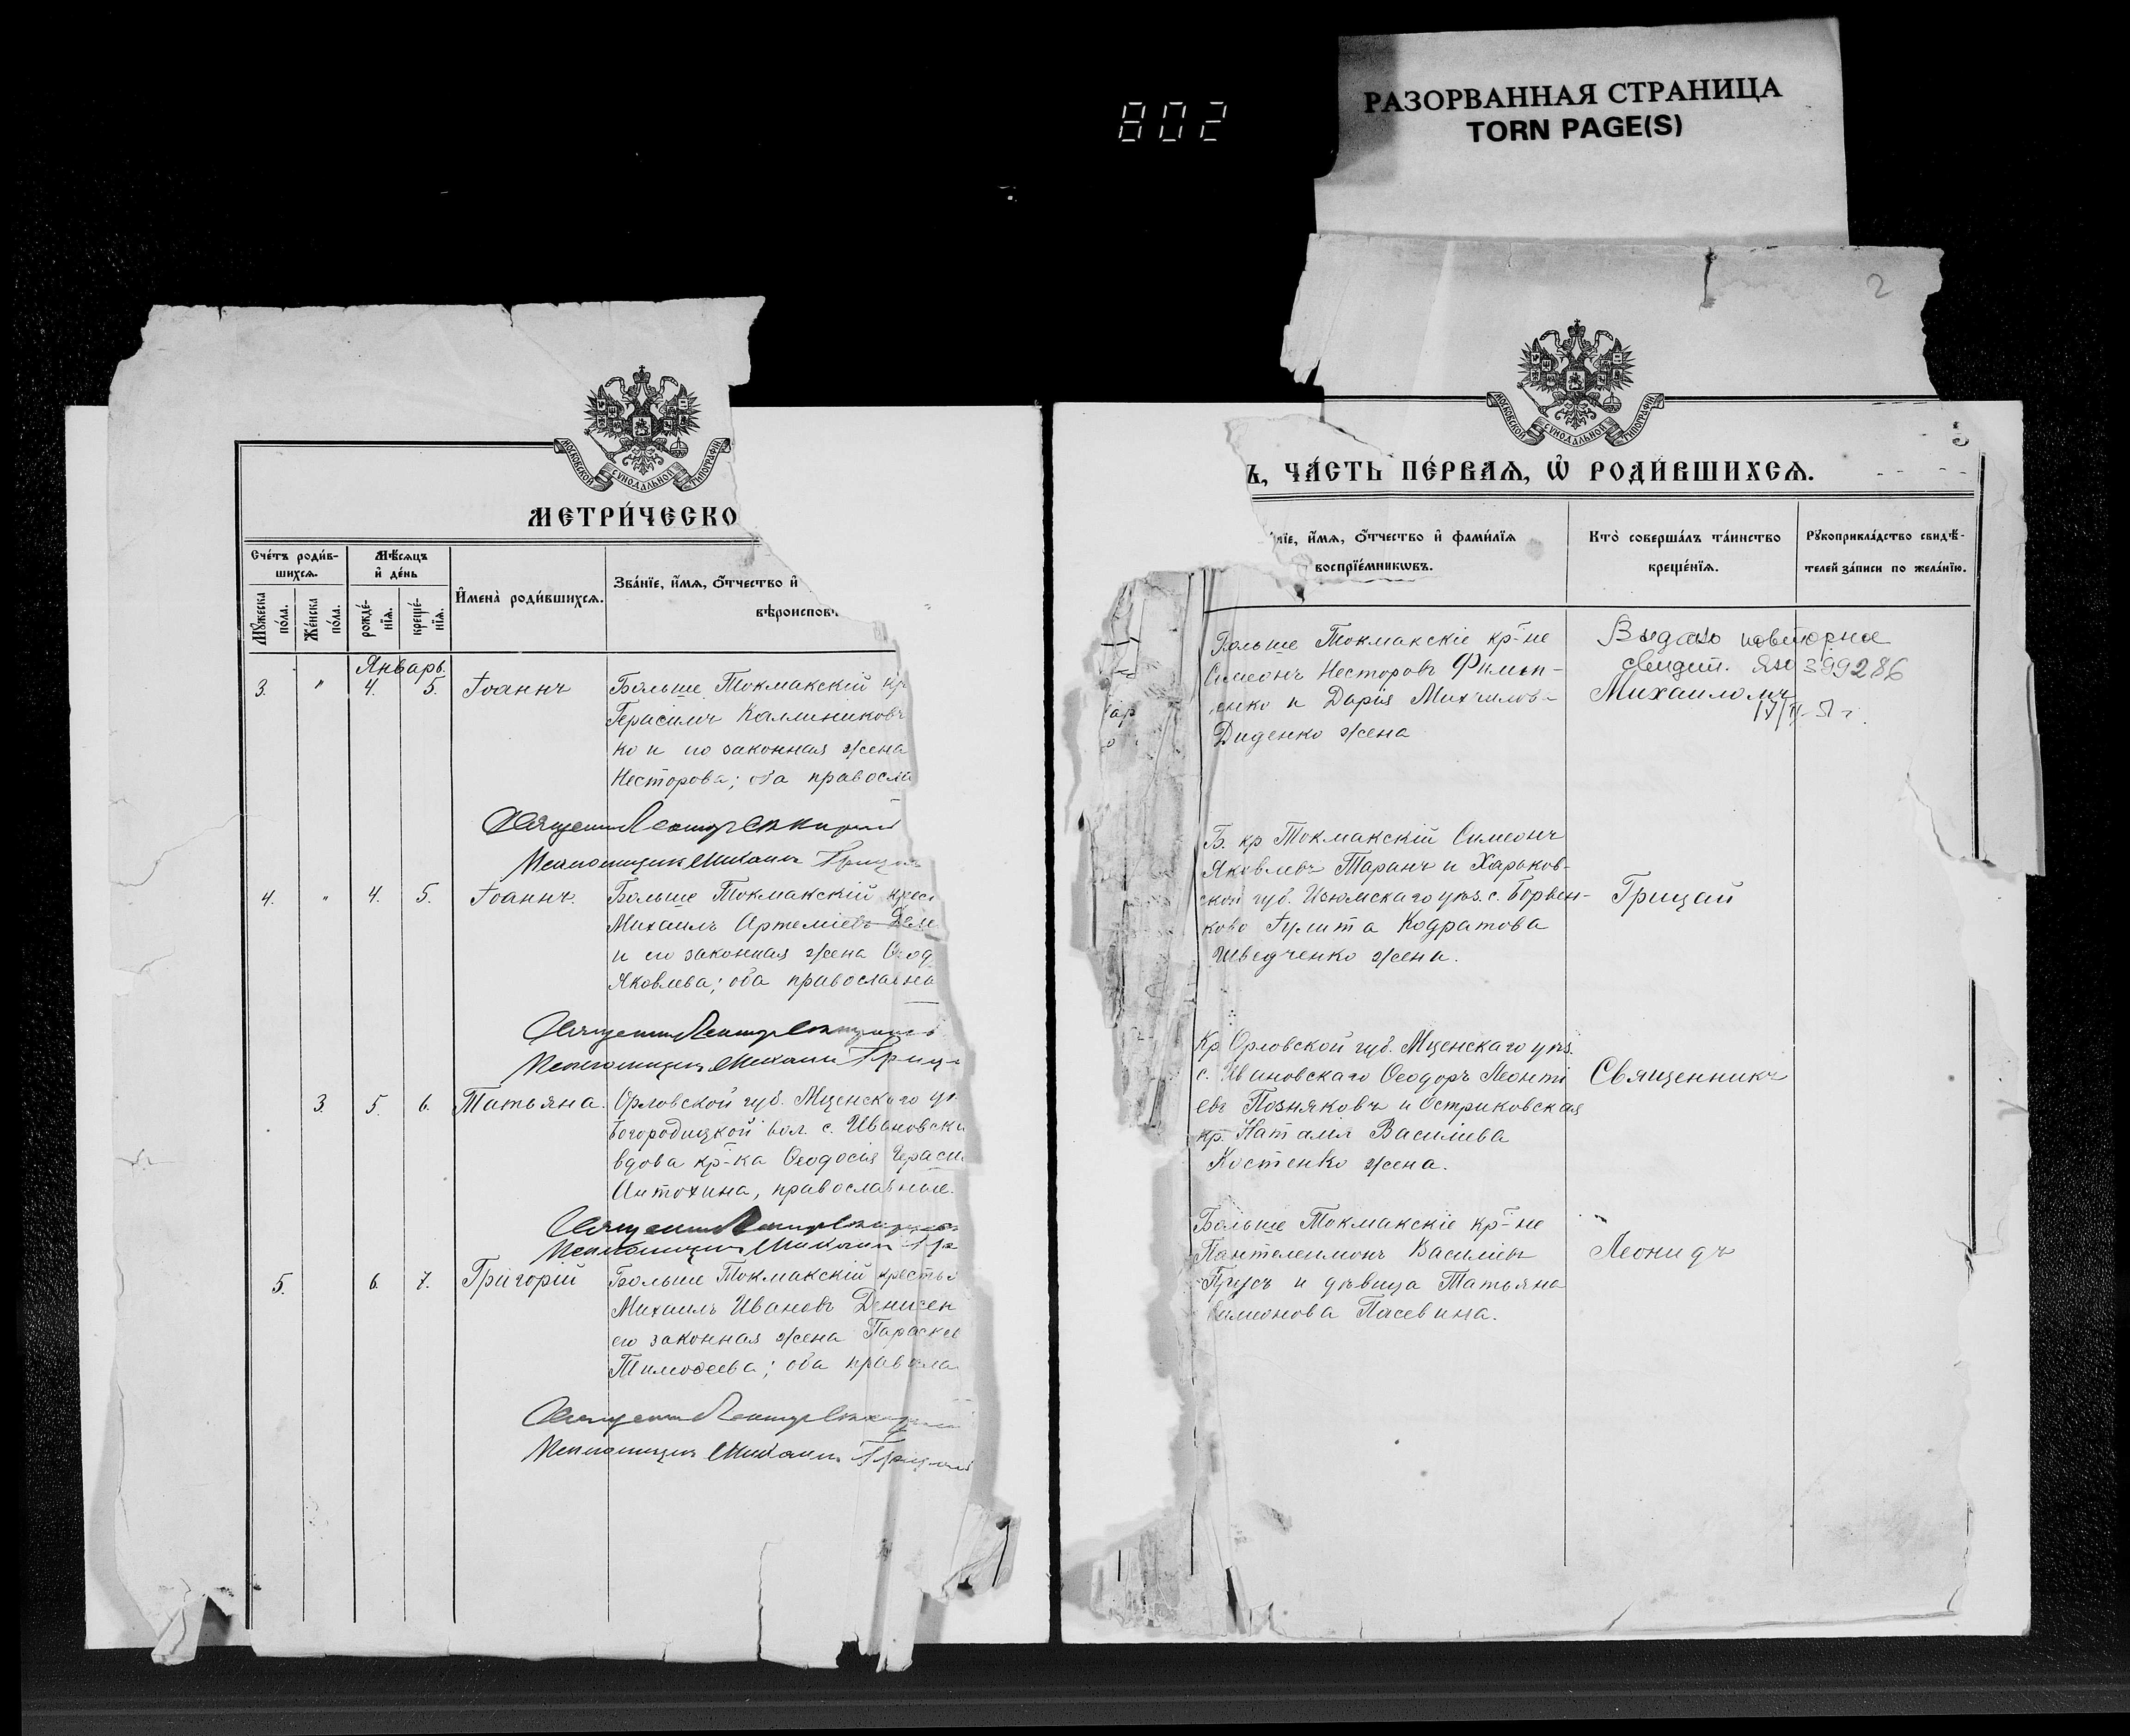 802
РАЗОРВАННАЯ СТРАНИЦА
TORN PAGE(S)
2
МОСКОВСКОЙ СѴНОДАЛЬНОЙ ТИПОГРАФІИ
МЕТРИ́ЧЕСКО
Сче́тъ роди́в-
шихсѧ.
Мѣ́сѧцъ
и҆ де́нь
Мꙋ́жеска по́ла.
Же́нска по́ла.
рожде́-
нїѧ.
креще́-
нїѧ.
И҆мена̀ роди́вшихсѧ.
Зва́нїе, и҆́мѧ, ѻ҆́тчество и҆
вѣроиспов
Январь.
3. " 4. 5. Іоаннъ
Больше Токмакскій кр
Герасимъ Каллиниковъ
ко и его законная жена
Несторова; оба правосла
Михаилъ
4. " 4. 5. Іоаннъ.
Больше Токмакскій крес
Михаилъ Артеміевъ
и его законная жена Ѳеод
Яковлева; оба православно
Михаилъ
3. 5. 6. Татьяна.
Орловской губ. Мценскаго у
Богородицкой вол. с. Ивановска
вдова кр-ка Ѳеодосія Гераси
Антохина, православные.
Михаилъ
5. 6. 7. Григорій
Больше Токмакскій крестья
Михаилъ Ивановъ Денисен
его законная жена Параскев
Тимоѳеева; оба правосла
Михаилъ
МОСКОВСКОЙ СѴНОДАЛЬНОЙ ТИПОГРАФІИ
Ъ, ЧА́СТЬ ПЕ́РВАѦ, Ѡ҆ РОДИ́ВШИХСѦ.
нїе, и҆́мѧ, ѻ҆́тчество и҆ фами́лїѧ
воспрїе́мникѡвъ.
Кто̀ соверша́лъ та́инство
креще́нїѧ.
Рꙋкоприкла́дство свидѣ́-
телей за́писи по жела́нїю.
Больше Токмакскіе кр-не
Симеонъ Несторовъ Филип-
енко и Дарія Михаилова
Диденко жена
Выдано повторное
свидет. 399286
Михаиломъ
Б. кр Токмакскій Симеонъ
Яковлевъ Таранъ и Харьков-
ской губ. Изюмскаго уѣз. с. Борвен-
ково Іулита Кодратова
Шведченко жена.
Грицай
Кр. Орловской губ. Мценскаго уѣз.
с. Ивановскаго Ѳеодоръ Леонті
евъ Позняковъ и Остриковская
кр. Наталія Василіева
Костенко жена.
Священникъ
Больше Токмакскіе кр-не
Пантелеимонъ Василіевъ
Прусъ и дѣвица Татьяна
Симеонова Пасевина.
Леонидъ